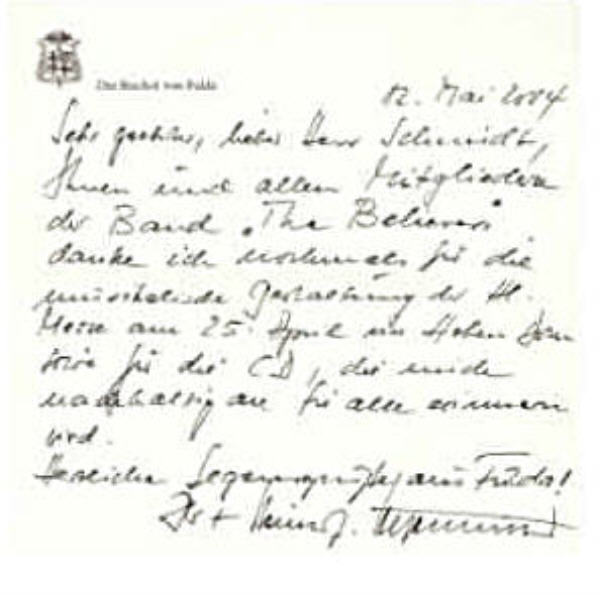 Der Bischof von Fulda
02. Mai 2004
Sehr geehrter, lieber Herr Schmidt,
Ihnen und allen Mitgliedern
der Band "The Believers"
danke ich nochmals für die
musikalische Gestaltung der Hl.
Messe am 25. April im Hohen Dom
sowie für die CD, die mich
nachhaltig an Sie alle erinnern
wird.
Herzliche Segensgrüße aus Fulda!
Ihr + Heinz J. Algermissen